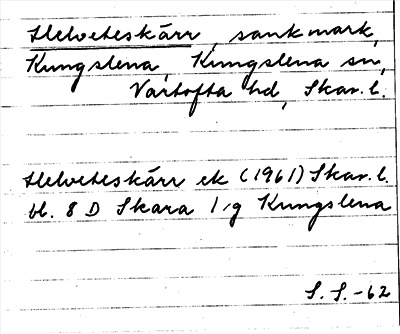 Helveteskärr, sank mark,
Kungslena, Kungslena sn,
Vartofta hd, Skar. l.
Helveteskärr ek (1961) Skar. l.
bl. 8 D Skara 1/g Kungslena
S. S. -62